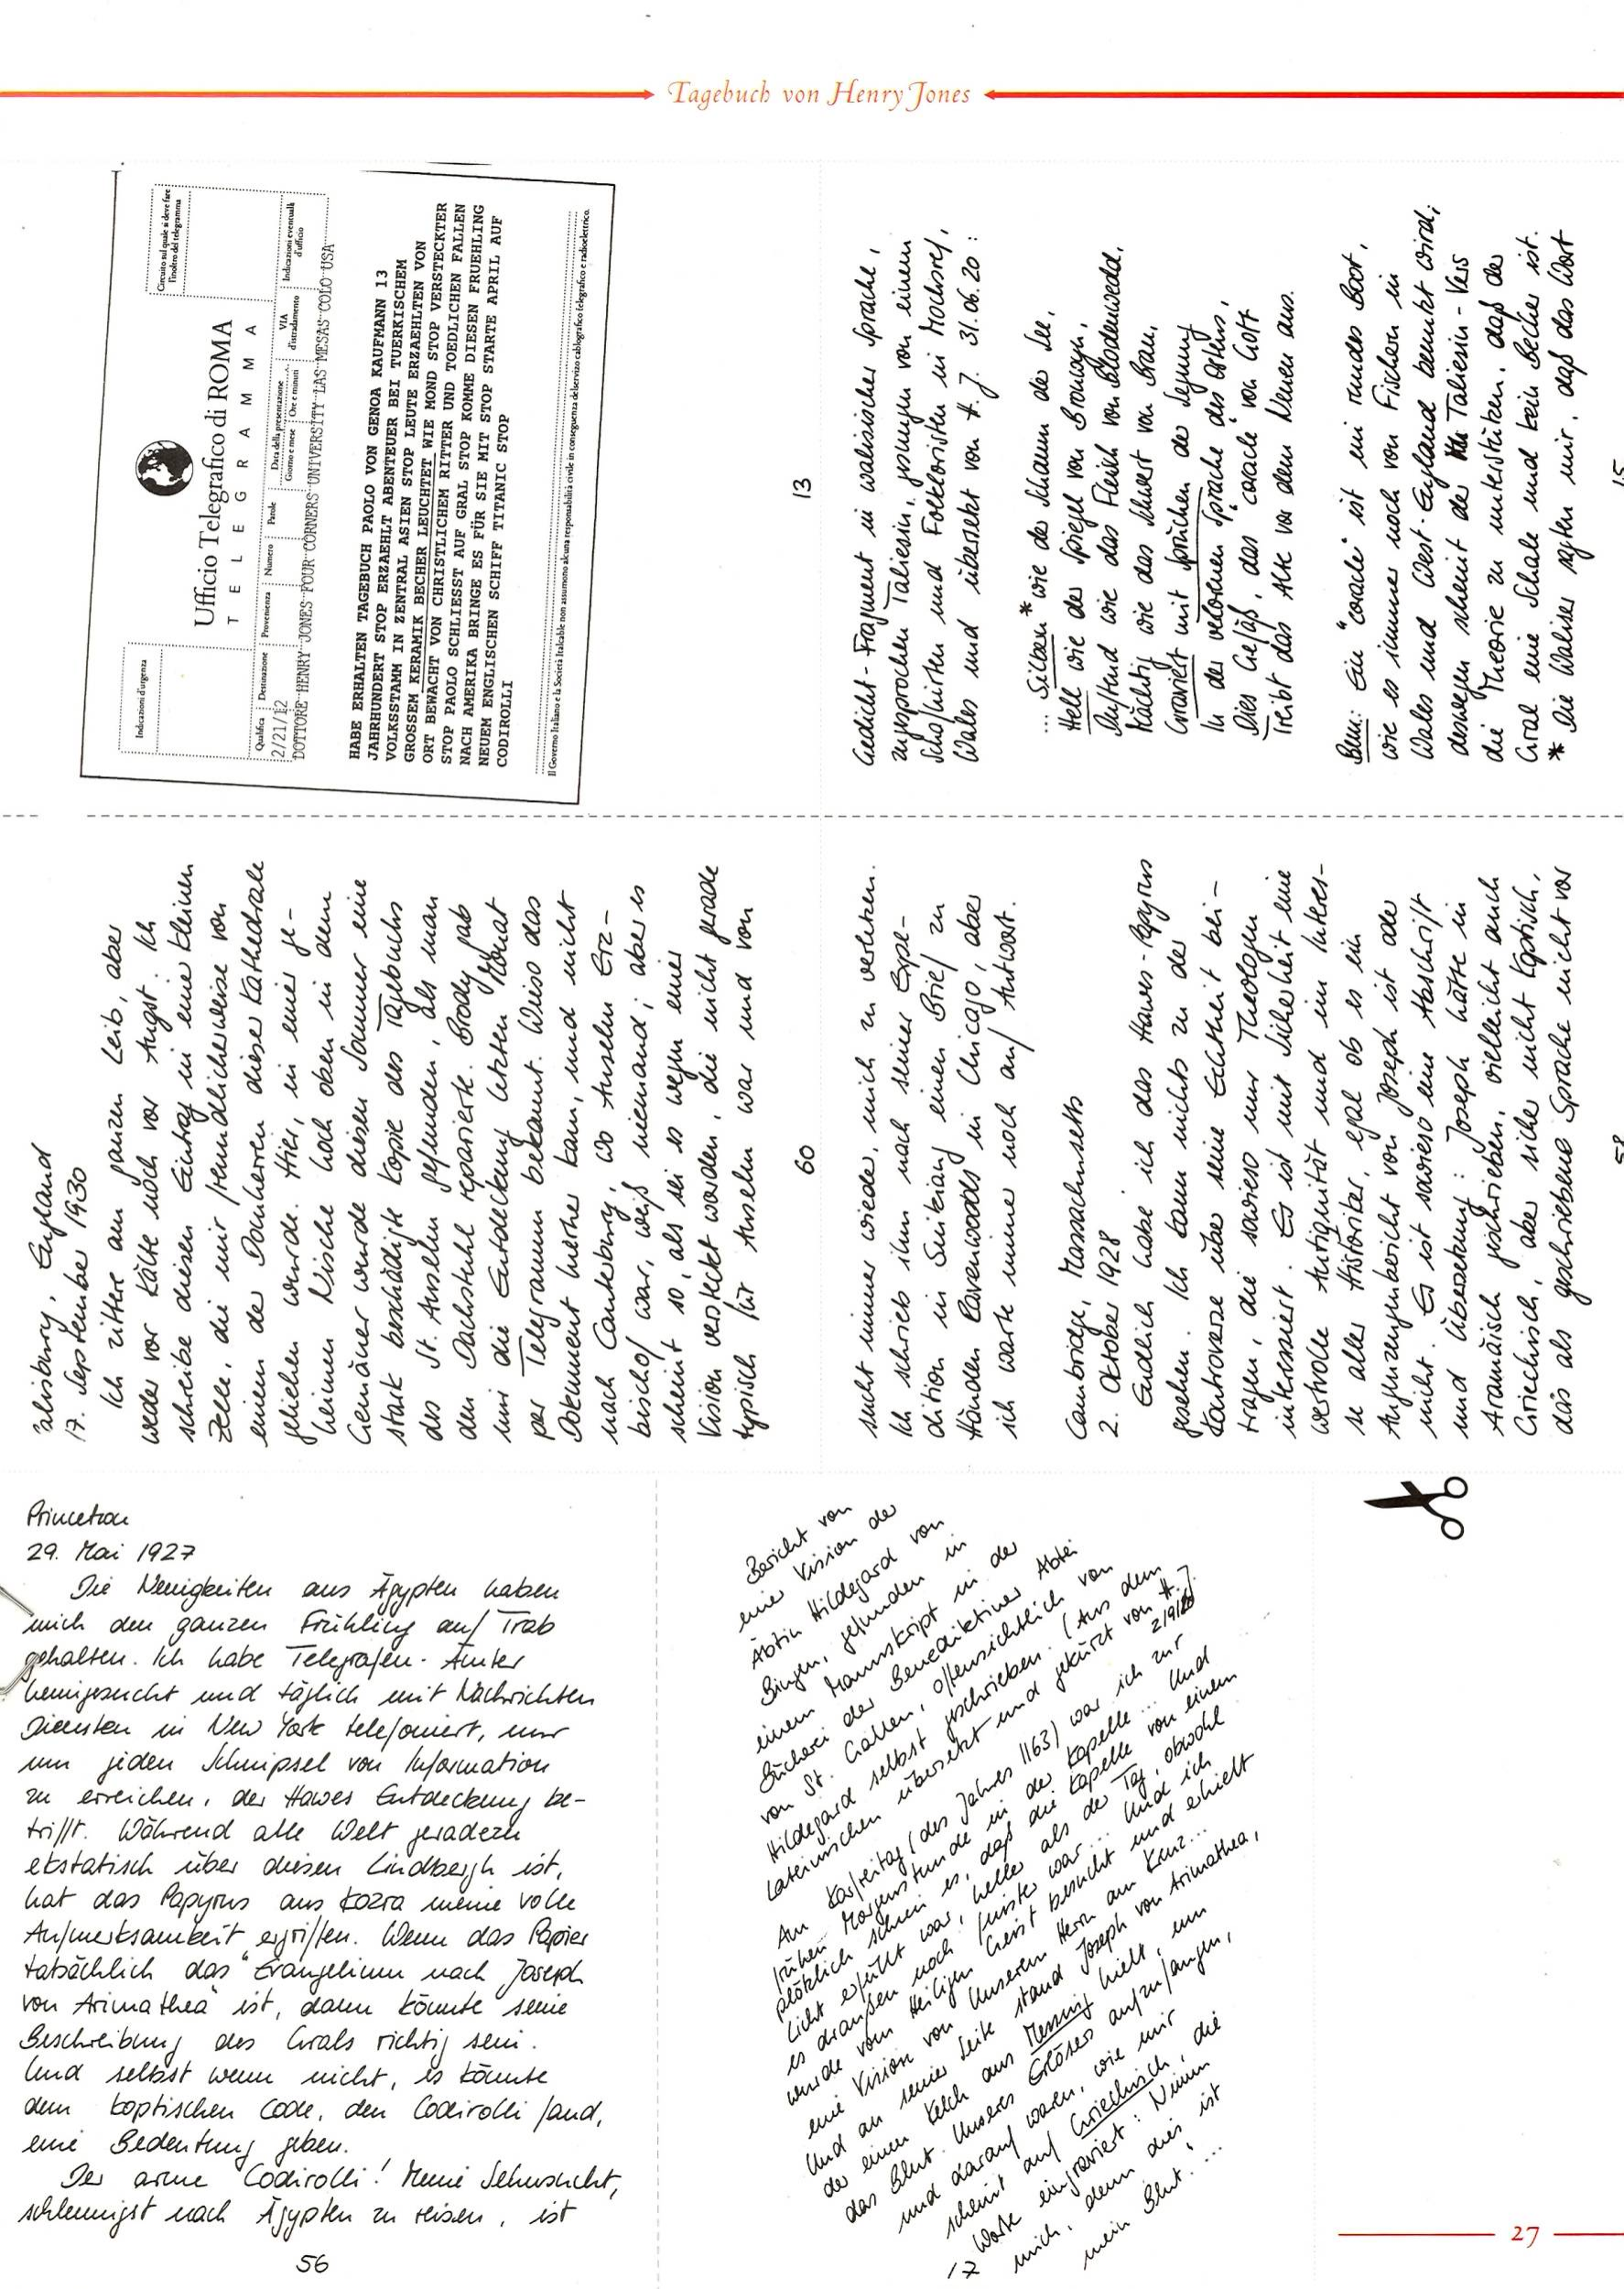 Tagebuch von Henry Jones
Indicazioni d'urgenza
Ufficio Telegrafico di ROMA
TELEGRAMMA
Circuito sul quale si deve fare
l'inoltro del telegramma
Qualifica
Destinazione
Provenienza
Numero
Parole
Data della presentazione
Giorno e mese
Ore e minuti
VIA
d'istradamento
Indicazioni eventuali
d'ufficio
2/21/12
DOTTORE HENRY JONES FOUR CORNERS UNIVERSITY LAS MESAS COLO USA
HABE ERHALTEN TAGEBUCH PAOLO VON GENOA KAUFMANN 13
JAHRHUNDERT STOP ERZAEHLT ABENTEUER BEI TUERKISCHEM
VOLKSSTAMM IN ZENTRAL ASIEN STOP LEUTE ERZAEHLTEN VON
GROSSEM KERAMIK BECHER LEUCHTET WIE MOND STOP VERSTECKTER
ORT BEWACHT VON CHRISTLICHEM RITTER UND TOEDLICHEN FALLEN
STOP PAOLO SCHLIESST AUF GRAL STOP KOMME DIESEN FRUEHLING
NACH AMERIKA BRINGE ES FÜR SIE MIT STOP STARTE APRIL AUF
NEUEM ENGLISCHEN SCHIFF TITANIC STOP
CODIROLLI
Il Governo Italiano e la Società Italcable non assumono alcuna responsabilità civile in conseguenza del servizio cablografico telegrafico e radioelettrico.
13
Gedicht-Fragment in walisischer Sprache,
zugesprochen Taliesin, gesungen von einem
Schafhirten und Folkloristen in Mochsref,
Wales und übersetzt von H. J. 31.06.20:
... Silbern* wie der Schaum der See,
Hell wie der Spiegel von Bronwyn,
Duftend wie das Fleisch von Blodeuwedd,
Mächtig wie das Schwert von Bran,
Graviert mit Sprüchen der Segnung
In der verlorenen Sprache des Ostens,
Dies Gefäß, das "coracle" von Gott
Treibt das Alte vor dem Neuen aus.
Bem: Ein "coracle" ist ein rundes Boot,
wie es immer noch von Fischern in
Wales und West-England benutzt wird;
deswegen scheint der Taliesin-Vers
die Theorie zu unterstützen, daß der
Gral eine Schale und kein Becher ist.
* Die Waliser sagten mir, daß das Wort
15
Salisbury, England
17. September 1930
Ich zittere am ganzen Leib, aber
weder vor Kälte noch vor Angst. Ich
schreibe diesen Eintrag in einer kleinen
Zelle, die mir freundlicherweise von
einem der Domherren dieser Kathedrale
geliehen wurde. Hier, in einer ge-
heimen Nische hoch oben in dem
Gemäuer wurde diesen Sommer eine
stark beschädigte Kopie des Tagebuchs
des St. Anselm gefunden, als man
den Dachstuhl reparierte. Brody gab
mir die Entdeckung letzten Monat
per Telegramm bekannt. Wieso das
Dokument hierher kam, und nicht
nach Canterbury, wo Anselm Erz-
bischof war, weiß niemand; aber es
scheint so, als sei es wegen einer
Vision versteckt worden, die nicht gerade
typisch für Anselm war und von
60
sucht immer wieder, mich zu verhören.
Ich schrieb ihm nach seiner Expe-
dition in Sinkiang einen Brief zu
Händen Ravenwoods in Chicago, aber
ich warte immer noch auf Antwort.
Cambridge, Massachusetts
2. Oktober 1928
Endlich habe ich das Hawes-Papyrus
gesehen. Ich kann nichts zu der
Kontroverse über seine Echtheit bei-
tragen, die sowieso nur Theologen
interessiert. Es ist mit Sicherheit eine
wertvolle Antiquität und im Interes-
se aller Historiker, egal ob es ein
Augenzeugenbericht von Joseph ist oder
nicht. Es ist sowieso eine Abschrift
und Übersetzung: Joseph hätte in
Aramäisch geschrieben, vielleicht auch
Griechisch, aber sicher nicht Koptisch,
das als geschriebene Sprache nicht vor
58
Princeton
29. Mai 1927
Die Neuigkeiten aus Ägypten haben
mich den ganzen Frühling auf Trab
gehalten. Ich habe Telegrafen-Ämter
heimgesucht und täglich mit Nachrichten
Diensten in New York telefoniert, nur
um jeden Schnipsel von Information
zu erreichen, der Hawes Entdeckung be-
trifft. Während alle Welt geradezu
ekstatisch über diesen Lindbergh ist,
hat das Papyrus aus Kozra meine volle
Aufmerksamkeit ergriffen. Wenn das Papier
tatsächlich das "Evangelium nach Joseph
von Arimathea" ist, dann könnte seine
Beschreibung des Grals richtig sein.
Und selbst wenn nicht, es könnte
dem koptischen Code, den Codirolli fand,
eine Bedeutung geben.
Der arme Codirolli! Meine Sehnsucht,
schleunigst nach Ägypten zu reisen, ist
56
Bericht von
einer Vision der
Äbtin Hildegard von
Bingen, gefunden in
einem Manuskript in der
Bücherei der Benediktiner Abtei
von St. Gallen, offensichtlich von
Hildegard selbst geschrieben (Aus dem
Lateinischen übersetzt und gekürzt von H. J.
2/9/20
Am Karfreitag (des Jahres 1163) war ich zur
frühen Morgenstunde in der Kapelle... Und
plötzlich schien es, daß die Kapelle von einem
Licht erfüllt war, heller als der Tag, obwohl
es draußen noch finster war... Und ich
wurde vom Heiligen Geist besucht und erhielt
eine Vision von Unserem Herrn am Kreuz...
Und an seiner Seite stand Joseph von Arimathea,
der einen Kelch aus Messing hielt, um
das Blut Unseres Erlösers aufzufangen,
und darauf waren, wie mir
scheint auf Griechisch, die
Worte eingraviert: Nimm
mich, denn dies ist
mein Blut. ...
17
27